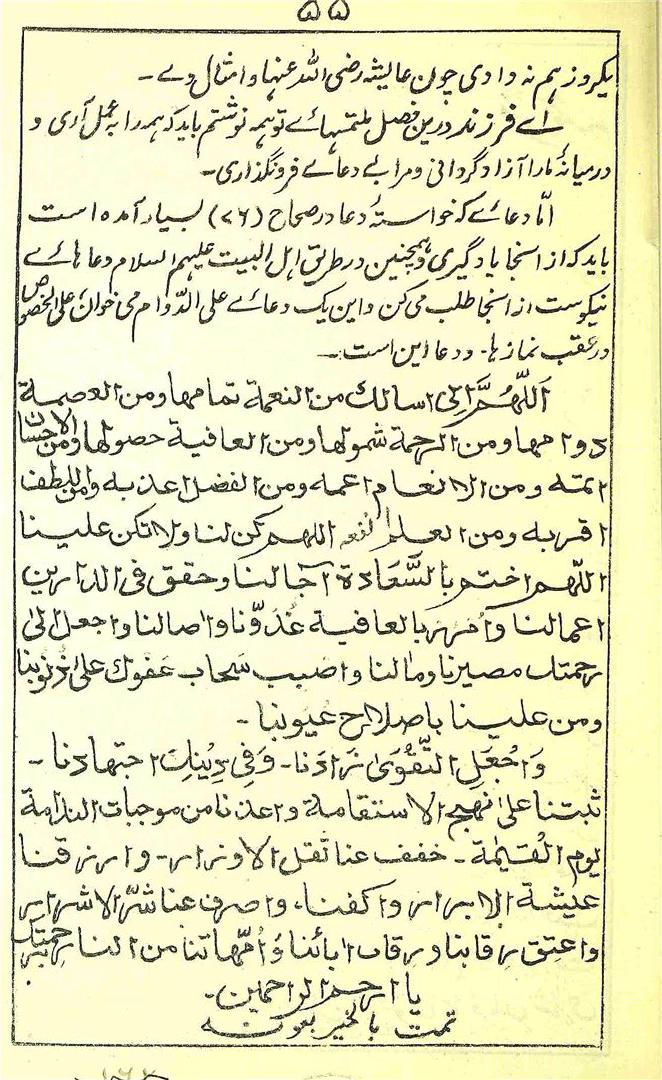 ۵۵
یکروز هم نه دادی چون عائیشه رضی اللّٰه عنہا و امثال وے ـ
اے فرزند درین فصل ملتمسہائے تو ہمہ نوشتم باید که همه را به عمل آری و
درمیانهٔ مارا آزاد گردانی و مرا بے دعاے فرونگذاری ـ
امّا دعاے که خواستهٔ دعا در صحاح (۲۶) بسیار آمده است
باید که از اینجا یاد گیری و همچنین در طریق اهل البیت علیهم السلام دعا هائے
نیکوست از اینجا طلب می کن و این یک دعاے علی الدّوام می خوان، علی الخصوص
در عقب نماز ها ـ و دعا این است:ـ
اَللّٰهُمَّ اِنِّی اسالك من النعمة تمامها ومن العصمة
دوامها ومن الرحمة شمولها ومن العافية حصولها ومن الاحسان
اتمه ومن الانعام اعمه ومن الفضل اعذبه ومن اللطف
اقربه ومن العلم انفعه اللهم كن لنا ولا تكن علينا
اللّٰهم اختم بالسَّعادة آجالنا وحقق فى الدارين
اعمالنا وامهر بالعافية غُدوّنا واصالنا واجعل الىٰ
رحمتك مصيرنا ومالنا واصبب سَحاب عَفوك علىٰ ذنوبنا
ومن علينا باصلاح عيوبنا ـ
وَاجْعَلِ التَّقْوَىٰ زَادَنا ـ وَفِى دِيْنِكَ اجتهادنا ـ
ثبتنا علىٰ نهج الاستقامة واعذنا من موجبات الندامة
يوم الْقِيٰمة ـ خفف عنا ثقل الاوزار ـ وارزقنا
عليشة الابرار واكفنا، واصرف عنا شَرّ الاشرار
واعتق رقابنا ورقاب ابائنا وَاُمّهاتنا من النار برحمتك
يا ارحم الراحمين ـ
تمت بالخير بعونه